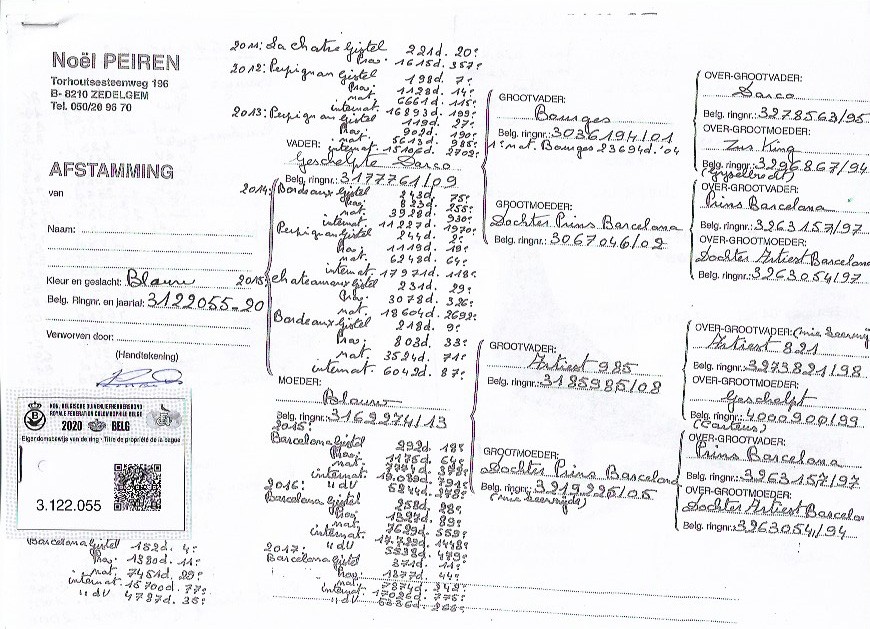 Noël PEIREN
Torhoutsesteenweg 196
B- 8210 ZEDELGEM
Tel. 050/20 96 70
AFSTAMMING
van
Naam:
Kleur en geslacht: Blauw
Belg. Ringnr. en jaartal: 3122055-20
Verworven door:
(Handtekening)
KON. BELGISCHE DUIVENLIEFHEBBERSBOND
ROYALE FEDERATION COLOMBOPHILE BELGE
2020 BELG
Eigendomsbewijs van de ring - Titre de propriété de la bague
3.122.055
Barcelona Gistel 152d. 4e
Prov. 1380d. 11e
nat. 7451d. 29e
internat. 15700d. 77e
" dV 4787d. 35e
2011: La Chatre Gistel 221d. 20e
Prov. 1615d. 357e
2012: Perpignan Gistel 198d. 7e
Prov. 1128d. 14e
nat. 6661d. 115e
internat. 16893d. 199e
2013: Perpignan Gistel 119d. 27e
Prov. 902d. 190e
nat. 5613d. 985e
internat. 15106d. 2702e
VADER:
Geschelpte Sarco
Belg. ringnr.: 3177761/09
2014: Bordeaux Gistel 243d. 75e
Prov. 823d. 255e
nat. 3928d. 930e
internat. 11227d. 1970e
Perpignan Gistel 244d. 2e
Prov. 1119d. 19e
nat. 6248d. 64e
internat. 17971d. 118e
2015: Chateauroux Gistel 231d. 29e
Prov. 3078d. 326e
nat. 18604d. 2692e
Bordeaux Gistel 218d. 9e
Prov. 803d. 33e
nat. 3524d. 71e
internat. 6042d. 87e
MOEDER:
Blauw
Belg. ringnr.: 3169274/13
2015:
Barcelona Gistel 292d. 18e
Prov. 1175d. 64e
nat.
internat.
" dV
2016:
Barcelona Gistel 258d. 28e
Prov. 89e
nat. 7629d. 559e
internat. 1448e
" dV 5538d. 479e
2017:
Barcelona Gistel 271d. 11e
Prov. 1377d. 44e
nat. 7874d. 342e
internat. 17026d. 775e
" dV 266e
GROOTVADER:
Bourges
Belg. ringnr.: 3036194/01
1e nat. Bourges 23694d. '04
GROOTMOEDER:
Dochter Prins Barcelona
Belg. ringnr.: 3067046/02
GROOTVADER:
Artiest 985
Belg. ringnr.: 3185985/08
GROOTMOEDER:
Dochter Prins Barcelona
Belg. ringnr.: 3219225/05
OVER-GROOTVADER:
Sarco
Belg. ringnr.: 3278563/95
OVER-GROOTMOEDER:
Zus King
Belg. ringnr.: 3296867/94
(Gyselbrecht)
OVER-GROOTVADER:
Prins Barcelona
Belg. ringnr.: 3263157/97
OVER-GROOTMOEDER:
Dochter Artiest Barcelona
Belg. ringnr.: 3263054/97
OVER-GROOTVADER:
Artiest 821
Belg. ringnr.: 3273821/98
OVER-GROOTMOEDER:
Geschelpt
Belg. ringnr.: 4000900/99
(Casteus)
OVER-GROOTVADER:
Prins Barcelona
Belg. ringnr.: 3263157/97
OVER-GROOTMOEDER:
Dochter Artiest Barcelo
Belg. ringnr.: 3263054/94